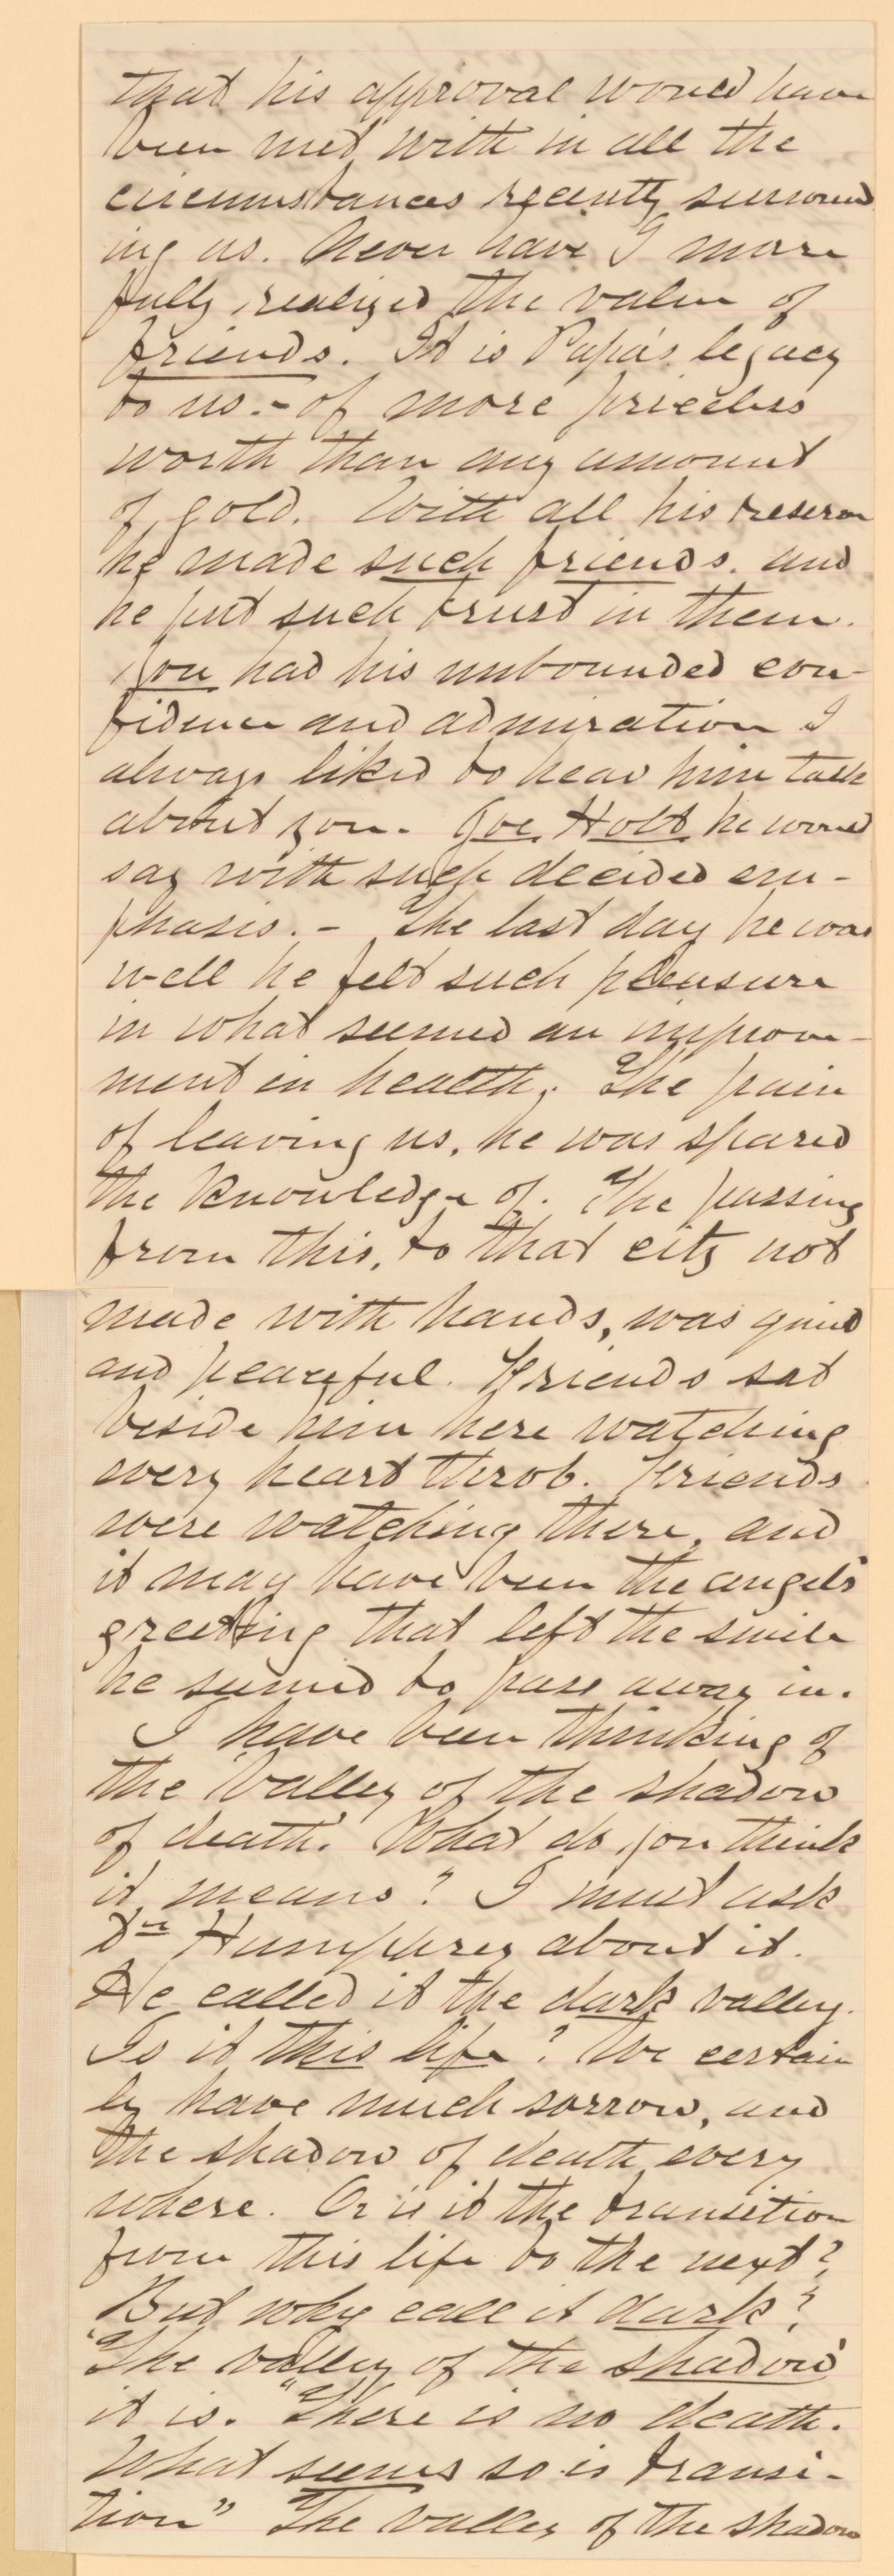 that his approval would have
been met with in all the
circumstances recently surround
ing us. Never have I more
fully realized the value of
friends. It is Papa's legacy
to us. - of more priceless
worth than any amount
of gold. With all his reserve
he made such friends. and
he put such trust in them.
You had his unbounded con-
fidence and admiration I
always liked to hear him talk
about you. Joe Holt he would
say with such decided em-
phasis. - The last day he was
well he felt such pleasure
in what seemed an improve-
ment in health. The pain
of leaving us, he was spared
the knowledge of. The passing
from this, to that city not
made with hands, was quiet
and peaceful. Friends sat
beside him here watching
every heart throb. Friends
were watching there, and
it may have been the angels'
greeting that left the smile
he seemed to pass away in.
I have been thinking of
the 'valley of the shadow
of death.' What do you think
it means? I must ask
Dr Humphrey about it.
He called it the dark valley.
Is it this life? We certain
ly have much sorrow, and
the shadow of death every
where. Or is it the transition
from this life to the next?
But why call it dark?
'The valley of the shadow'
it is. "There is no death.
What seems so is transi-
tion" The valley of the shadow